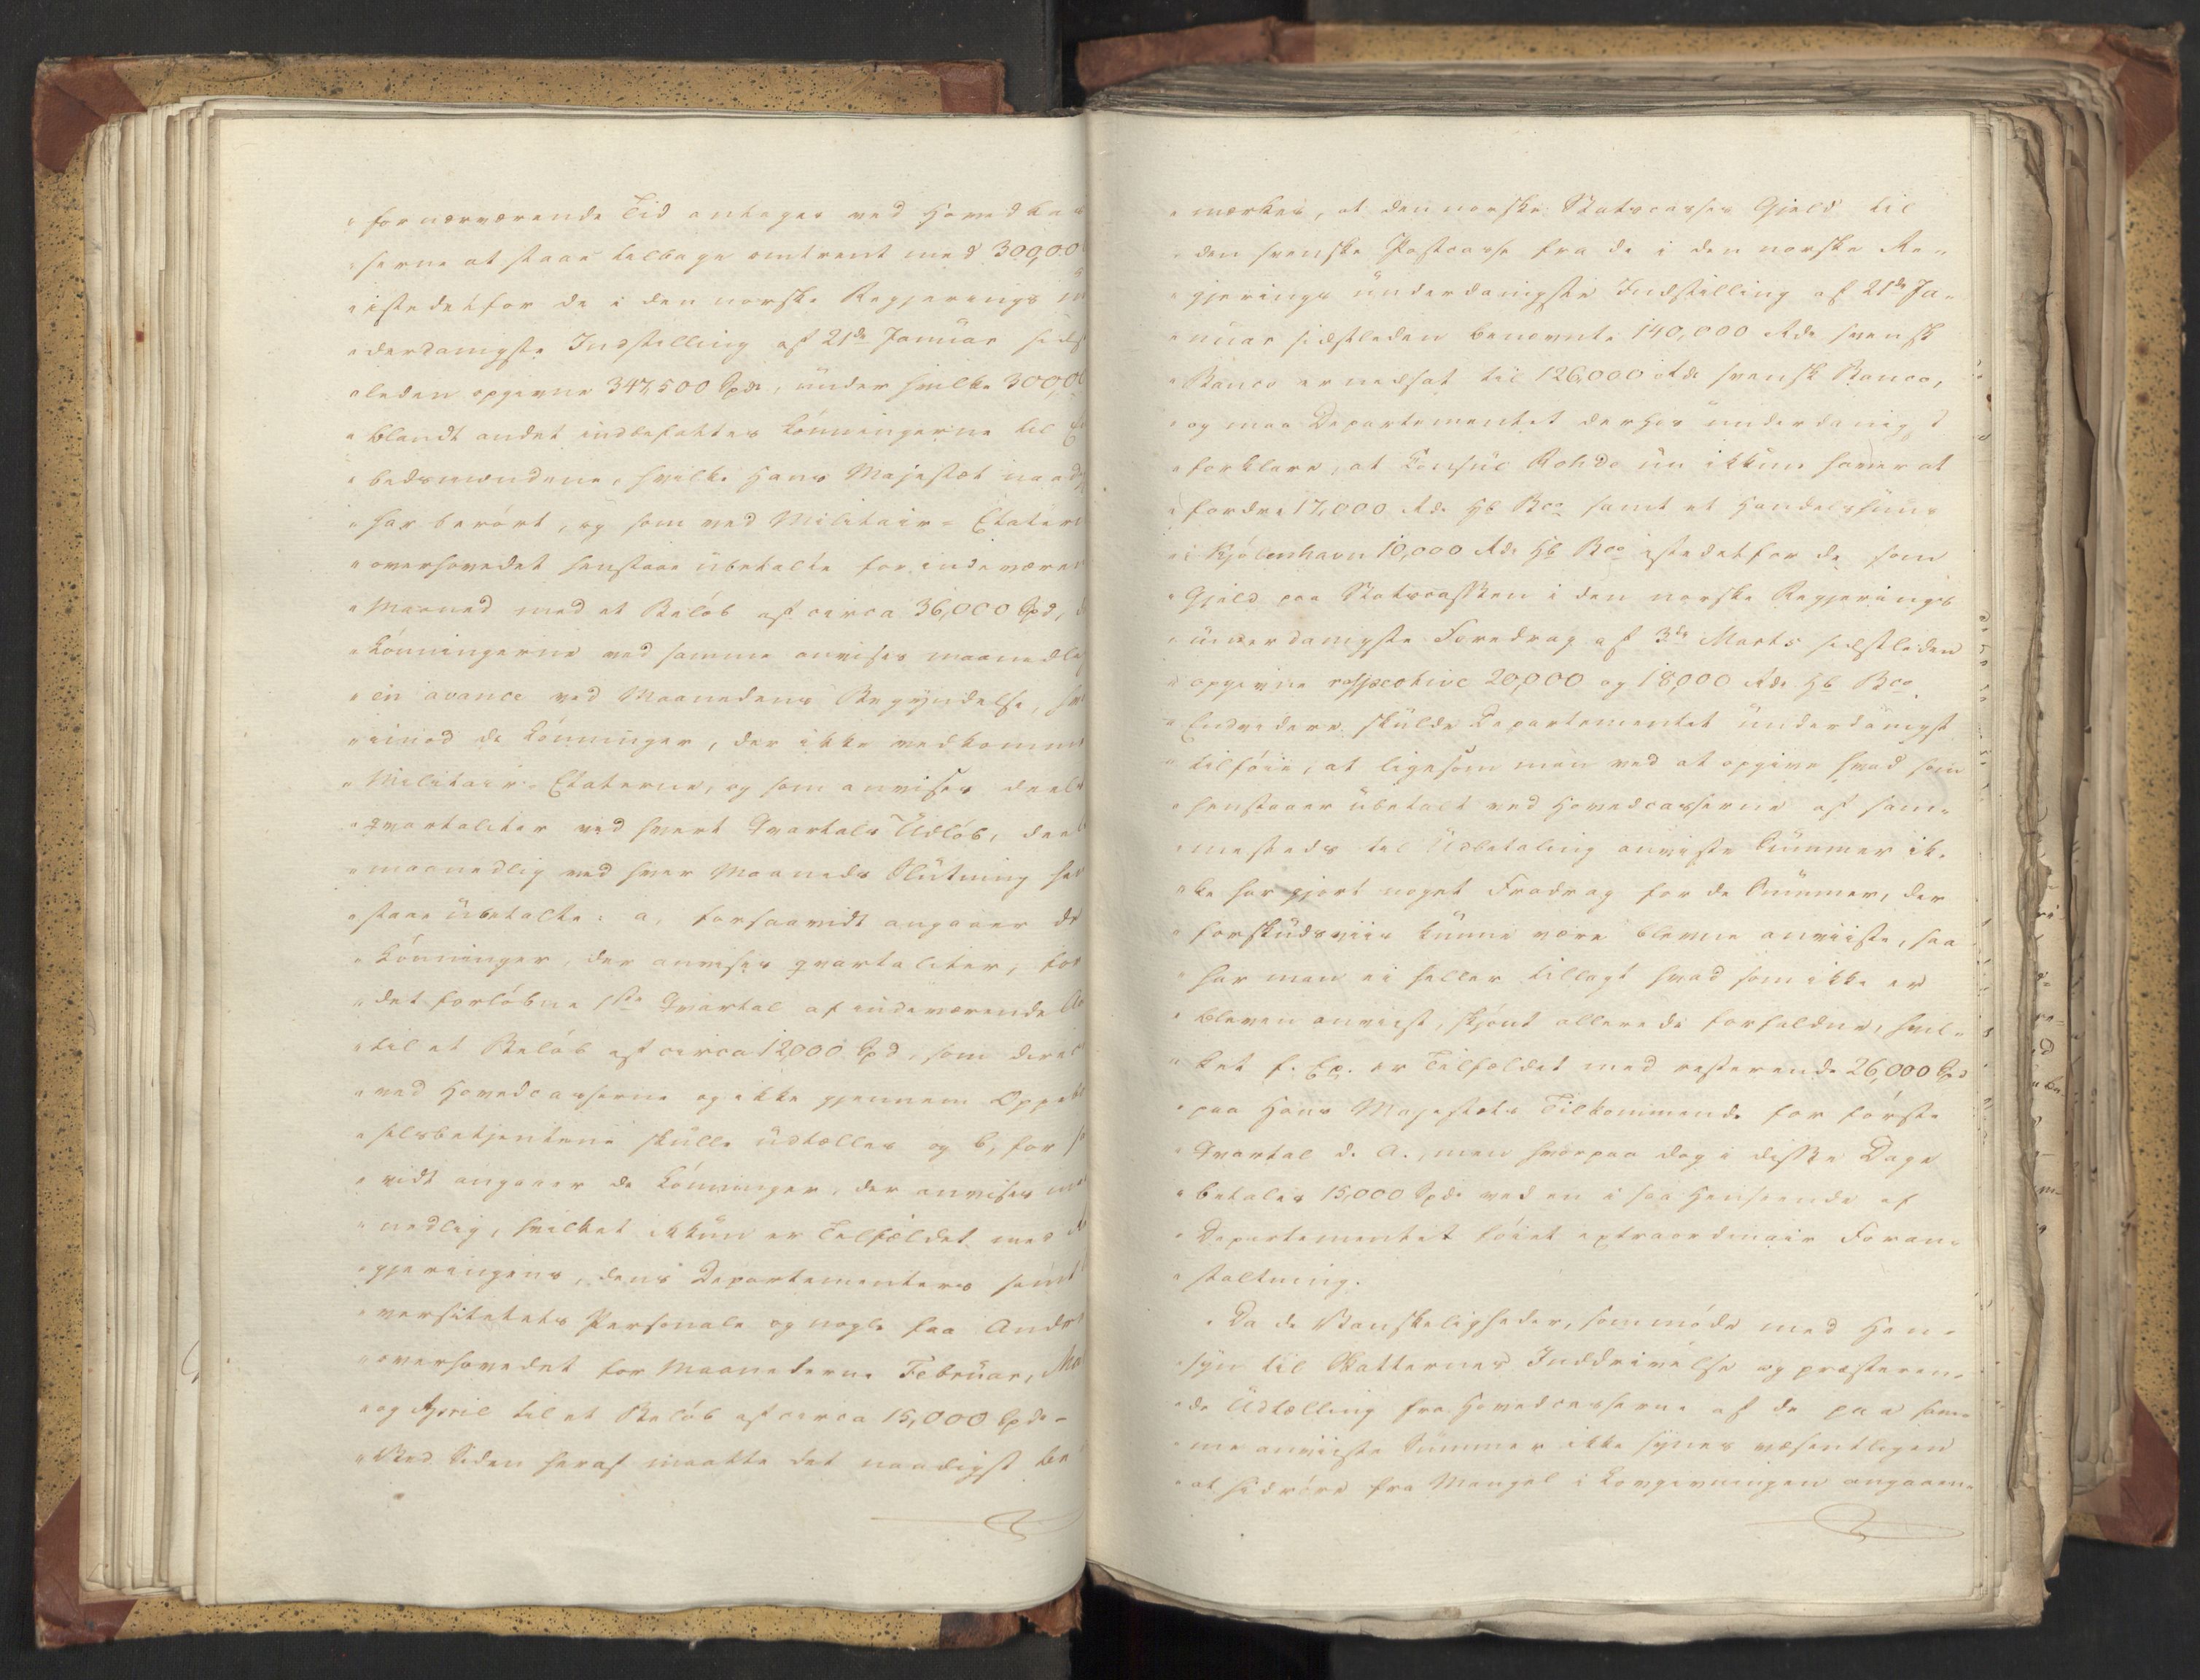 "for nærværende Tid antages ved Hovedkas
"serne at staae tilbage omtrent med 300,00
"istedetfor de i den norske Regjerings
"derdanigste Indstilling af 21de Januar sidst
"leden opgivne 347,500 Spd, under hvilke 300,0
"blandt andet indbefattes Lönningerne til
"bedsmændene, hvilke Hans Majestæt naad
"har berört, og som ved Militair-Etatern
"overhovedet henstaae ubetalte for indeværen
"Maaned med et Belöb af circa 36,000 Spd,
"Lönningerne ved samme anvises maanedlig
"en avance ved Maanedens Begyndelse,
"imod de Lönninger, der ikke vedkomme
"Militair-Etaterne, og som anvises deels
"qvartaliter ved hvert Qvartals Udlöb, deels
"maanedlig ved hver Maaneds Slutning hen
"staae ubetalte: a, forsaavidt angaaer de
"Lönninger, der anvises qvartaliter, for
"det forlöbne 1ste Qvartal af indeværende
"til et Belöb af circa 12000 Spd, som
"ved Hovedcasserne og ikke gjennem Oppe
"selsbetjentene skulle udtælles og b, for
"vidt angaaer de Lönninger, der anvises
"nedlig, hvilket ikkun er Tilfældet med
"gjeringens, dens Departementers samt
"versitetets Personale og nogle faa Andre
"overhovedet for Maanederne Februar,
"og April til et Belöb af circa 15,000 Spd-
"Ved Siden heraf maatte det naadigst be
"mærkes, at den norske Statscasses Gjeld til
"den svenske Postcasse fra de i den norske Re-
"gjerings underdanigste Indstilling af 21de Ja-
"nuar sidstleden benævnte 140,000 Rdr svensk
"Banco er nedsat til 126,000 Rdr svensk Banco,
"og maa Departementet derhos underdanigst
"forklare, at Consul Rohde nu ikkun haver at
"fordre 17,000 Rdr Hb Bco samt et Handelshuus
"i Kjöbenhavn 10,000 Rdr Hb Bco istedetfor de som
"Gjeld paa Statscassen i den norske Regjerings
"underdanigste Foredrag af 3de Marts sidstleden
"opgivne respective 20,000 og 18,000 Rdr Hb Bco.
"Endvidere skulde Departementet underdanigst
"tilföie, at ligesom man ved at opgive hvad som
"henstaaer ubetalt ved Hovedcasserne af sam-
"mesteds til Udbetaling anviste Summer ik-
"ke har gjort noget Fradrag for de Summer, der
"forskudsviis kunne være blevne anviiste, saa
"har man ei heller tillagt hvad som ikke er
"bleven anviist, skjönt allerede forfalden, hvil-
"ket f. Ex. er Tilfældet med resterende 26,000 Spd
"paa Hans Majestæts Tilkommende for förste
"Qvartal d. A., men hvorpaa dog i disse Dage
"betales 15,000 Spd. ved en i saa Henseende af
"Departementet föiet extraordinair Foran-
"staltning.
"Da de Vanskeligheder, som möde med Hen-
"syn til Skatternes Inddrivelse og præsteren-
"de Udtælling fra Hovedcasserne af de paa sam-
"me anviiste Summer ikke synes væsentligen
"at hidröre fra Mangel i Lovgivningen angaaen-